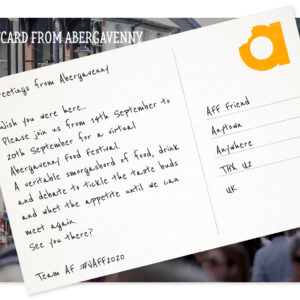 CARD FROM ABERGAVENNY
eetings from Abergavenny
wish you were here...
Please join us from 14th September to
20th September for a virtual
Abergavenny Food Festival.
A veritable smorgasbord of food, drink
and debate to tickle the taste buds
and whet the appetite until we can
meet again.
See you there?
Team AF #VAFF2020
a
AFF Friend
Anytown
Anywhere
UK